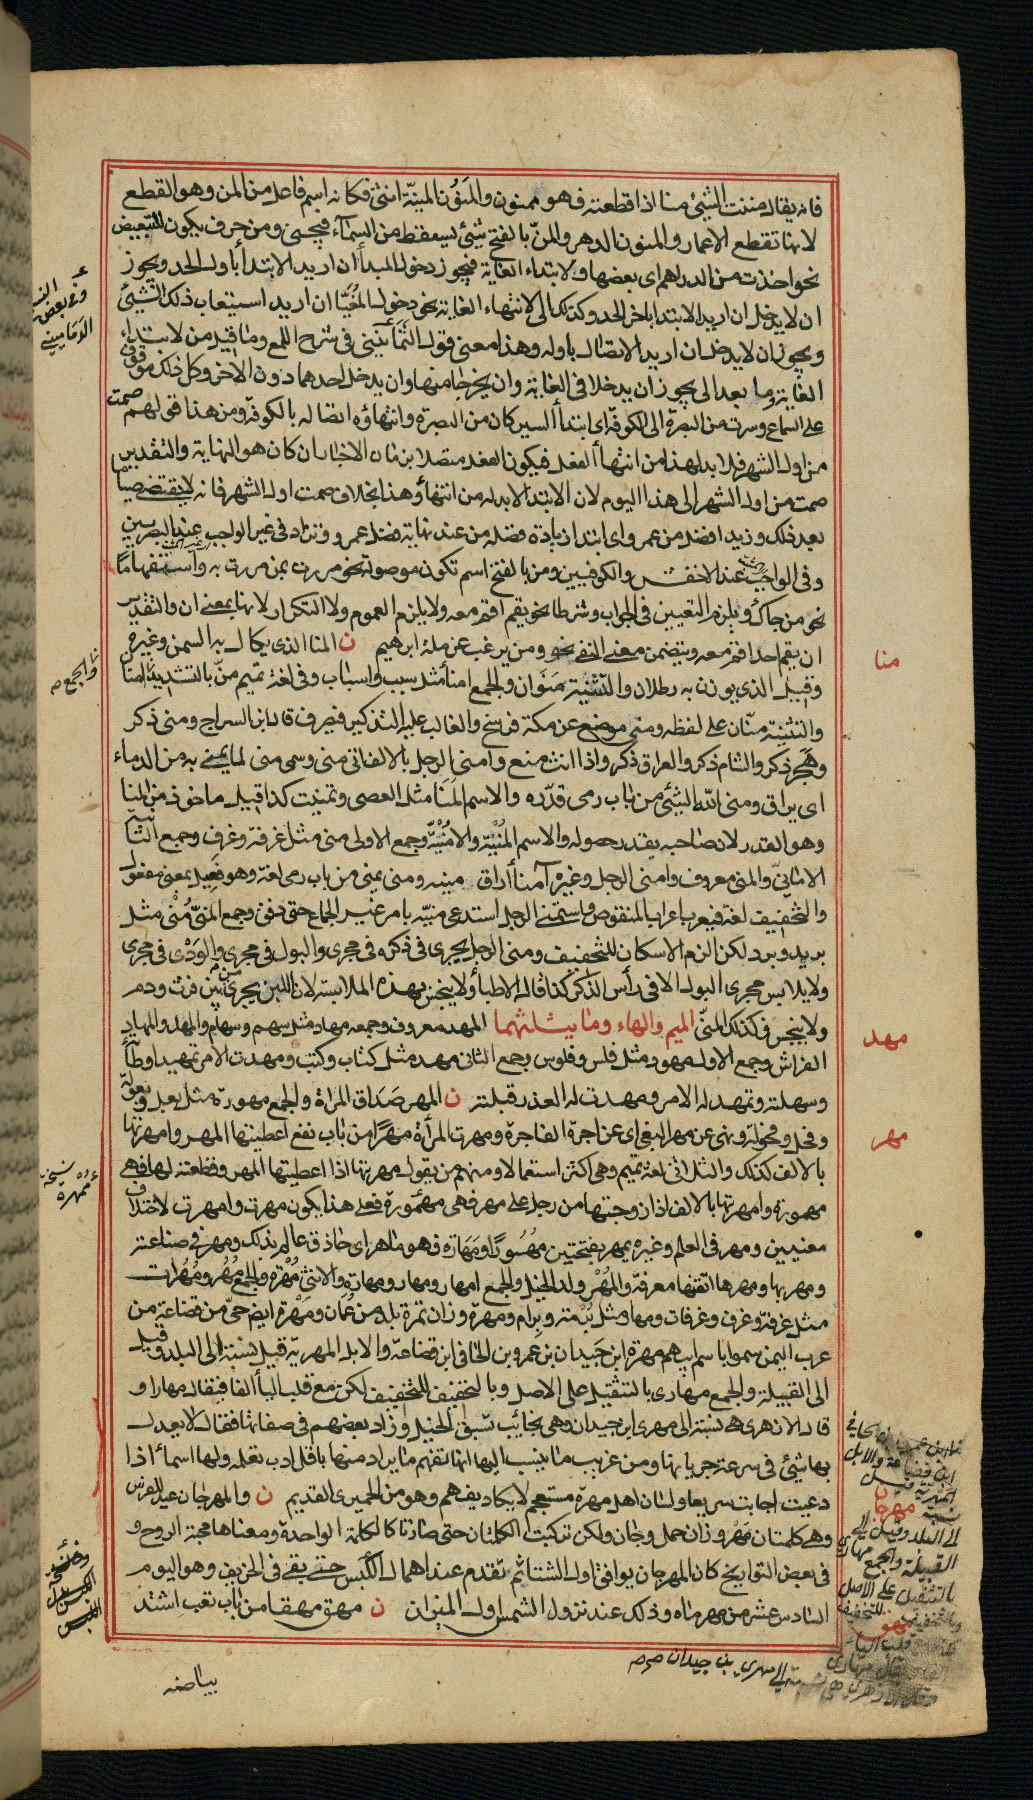 فانه يقال مننت الشيئ منا اذا قطعته فهو ممنون والمنون المنية انثى فكانه اسم فاعل من المن وهو القطع
لانها تقطع الاعمار والمنون الدهر والمن بالفتح شيئ يسقط من السمآء فيجنى ومن حرف يكون للتبعيض
نحو اخذت من الدراهم اى بعضها ولابتداء الغاية فيجوز دخول المبدأ ان اريد الابتدأ باول الحد ويجوز
ان لا يدخل ان اريد الابتدا باخر الحد وكذلك الى لانتهاء الغاية نحو دخول المغيا ان اريد استيعاب ذلك الشيئ
ويجوز ان لا يدخل ان اريد الاتصال باوله وهذا معنى قول الثمانينى فى شرح اللمع وما قيد من لابتداء
الغاية وما بعد الى يجوز ان يدخلا فى الغاية وان يخرجا منها وان يدخل احدهما دون الاخر وكل ذلك موقوف
على السماع وسرت من البصرة الى الكوفة اى ابتدأ السير كان من البصرة وانتهاؤه اتصاله بالكوفة ومن هذا قولهم صمت
من اول الشهر فلا بد لهذا من انتهأ الفعل فيكون الفعل متصلا بزمان الاخبار ان كان هو النهاية والتقدير
صمت من اول الشهر الى هذا اليوم لان الابتدا لا بد له من انتهأ وهذا بخلاف صمت اول الشهر فانه لا يقتضى صياما
بعد ذلك وزيد افضل من عمرو اى ابتدا زيادة فضله من عند نهاية فضل عمرو وتزاد فى غير الواجب عند البصريين
وفى الواجب عند الاخفش والكوفيين ومن بالفتح اسم تكون موصولة نحو مررت بمن مررت به واستفهاما
نحو من جاك ويلزم التعيين فى الجواب وشرطا نحو من يقم اقم معه ولا يلزم العموم ولا التكرار لانها بمعنى ان والتقدير
ان يقم احد اقم معه ويتضمن معنى النفى نحو ومن يرغب عن ملة ابرهيم ن المنا الذى يكال به السمن وغيره
وقيل الذى يوزن به رطلان والتثنية منوان والجمع امنأ مثل سبب واسباب وفى لغة تميم من بالتشديد والجمع امنان
والتثنية منان على لفظه ومنى موضع عن مكة فرسخ والغالب عليه التذكير فيصرف قال ابن السراج ومنى ذكر
وهجر ذكر والشام ذكر والعراق ذكر واذا انث منع وامنى الرجل بالالف اتى منى وسمى منى لما يمنى به من الدماء
اى يراق ومنى الله الشيئ من باب رمى قدره والاسم المنا مثل العصى وتمنيت كذا قيل ماخوذ من المنا
وهو القدر لان صاحبه يقدر حصوله والاسم المنية والامنية وجمع الاولى منى مثل غرفة وغرف وجمع الثانية
الامانى والمنى معروف وامنى الرجل وغيره آمنأ اراق منيه ومنى يمنى من باب رمى لغة وهو فعيل بمعنى مفعول
والتخفيف لغة فيعرب اعراب المنقوص واستمنى الرجل استدعى منيه بامر غير الجماع حتى دفق وجمع المنى منى مثل
بريد وبرد لكن الزم الاسكان للتخفيف ومنى الرجل يجرى فى ذكره فى مجرى والبول فى مجرى والودى فى مجرى
ولا يلابس مجرى البول الا فى رأس الذكر كذا قال الاطبأ ولا ينجس بهذه الملابسة لان اللبن يجرى من بين فرث ودم
ولا ينجس فكذلك المنى الميم والهاء وما يثلثهما المهد معروف وجمعه مهاد مثل سهم وسهام والمهد والمهاد
الفراش وجمع الاول مهود مثل فلس وفلوس وجمع الثانى مهد مثل كتاب وكتب ومهدت الامر تمهيدا وطأته
وسهلته وتمهد له الامر ومهدت له العذر قبلته ن المهر صداق المراة والجمع مهورة مثل بعل وبعولة
وفحل وفحولة ونهى عن مهر البغى اى عن اجرة الفاجرة ومهرت المرأة مهرا من باب نفع اعطيتها المهر وامهرتها
بالالف كذلك والثلاثى لغة تميم وهى اكثر استعمالا ومنهم من يقول مهرتها اذا اعطيتها المهر وقطعته لها فهى
مهمورة وامهرتها بالالف اذا زوجتها من رجل على مهر فهى ممهورة فعلى هذا يكون مهرت وامهرت لاختلاف
معنيين ومهر فى العلم وغيره يمهر بفتحتين مهسورا ومهارة فهو ماهر اى حاذق عالم بذلك ومهر فى صناعته
ومهر بها ومهرها اتقنها معرفة والمهر ولد الخيل والجمع امهار ومهار ومهارة والانثى مهرة والجمع مهر ومهرات
مثل غرفة وغرف وغرفات ومهار مثل برمة وبرام ومهرة وزان تمرة بلد من عمان ومهرة ايضا حى من قضاعة من
عرب اليمن سموا باسم ابيهم مهرة ابن حيدان بن عمرو بن الحافى ابن قضاعة والابل المهرية قيل نسبة الى البلد وقيل
الى القبيلة والجمع مهارى بالتثقيل على الاصل وبالتخفيف للتخفيف لكن مع قلب اليأ الفا فيقال مهارا و
قال الازهرى هى نسبة الى مهرى ابن حيدان وهى نجائب تسبق الخيل وزاد بعضهم فى صفاتها فقال لا يعدل
بها شيئ فى سرعة جريانها ومن غريب ما ينسب اليها انها تفهم ما يراد منها باقل ادب تعلمه ولها اسمأ اذا
دعيت اجابت سريعا ولسان اهل مهرة مستعجم لا يكاد يفهم وهو من الحميرى القديم ن والمهرجان عيد للفرس
وهى كلمتان مهر وزان حمل وجان ولكن تركبت الكلمتان حتى صارتا كالكلمة الواحدة ومعناها محبة الروح و
فى بعض التواريخ كان المهرجان يوافق اول الشتاء ثم تقدم عند اهمال الكبس حتى بقى فى الخريف وهو اليوم
السادس عشر من مهرماه وذلك عند نزول الشمس اول الميزان ن مهق مهقا من باب تعب اشتد
بياضه
وفى بعض النسخ
الدمامينى
منا
والجمع
مهد
مهر
نسخة
ممهرة
مهرجان
الى البلد وقيل الى
القبيلة والجمع مهارى
بالتثقيل على الاصل
مهق
الى مهرى بن حيدان